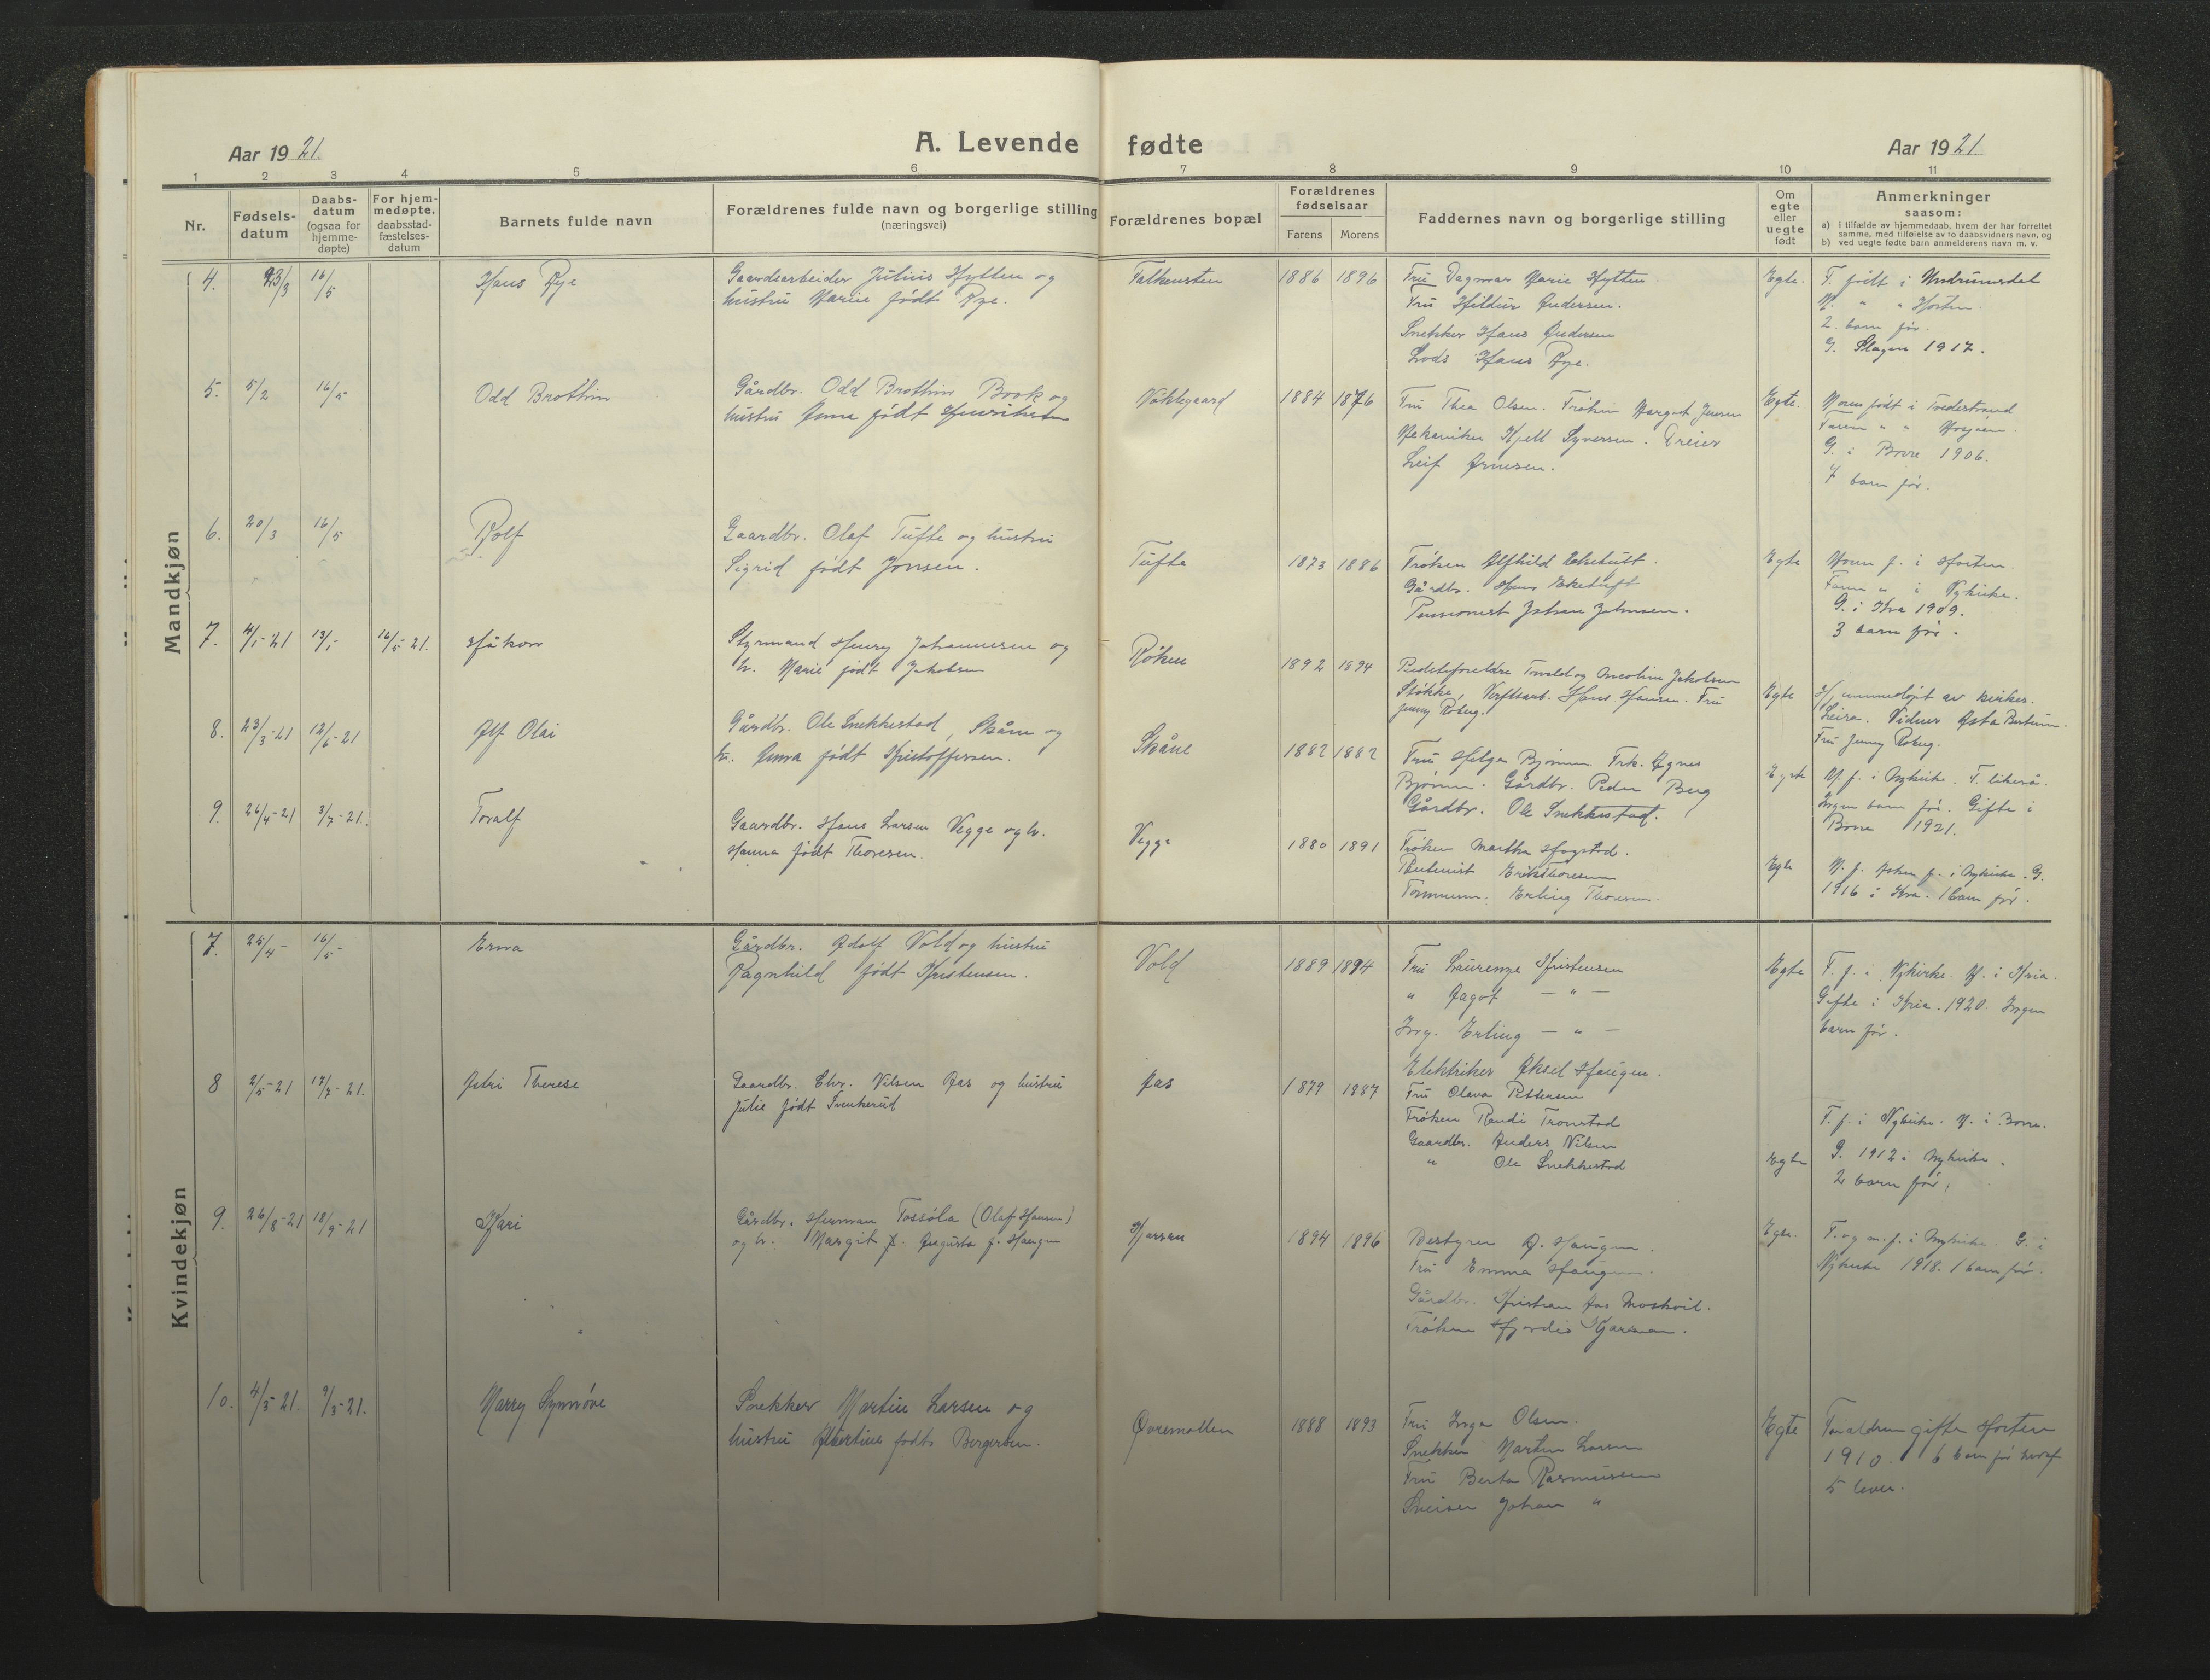 Aar 1921.
A. Levende fødte
Aar 1921.
1 2 3 4 5 6 7 8 9 10 11
Nr.
Fødsels-
datum
Daabs-
datum
(ogsaa for
hjemme-
døpte)
For hjem-
medøpte,
daabsstad-
fæstelses-
datum
Barnets fulde navn
Forældrenes fulde navn og borgerlige stilling
(næringsvei)
Forældrenes bopæl
Forældrenes
fødselsaar
Farens Morens
Faddernes navn og borgerlige stilling
Om
egte
eller
uegte
født
Anmerkninger
saasom:
a) i tilfælde av hjemmedaab, hvem der har forrettet
samme, med tilføielse av to daabsvidners navn, og
b) ved uegte fødte barn anmelderens navn m. v.
Mandkjøn
4. 23/3 16/5
Hans Rye
Gaardsarbeider Julius Hytten og
hustru Marie født Rye.
Falkensten
1886 1896
Fru Dagmar Marie Hytten.
Fru Hildur Andersen.
Snekker Hans Andersen
Lods Hans Rye.
Egte.
F. født i Undrumsdal
M. " " Horten.
2. barn før.
G. Slagen 1917.
5. 5/2 16/5
Odd Brottrin
Gårdbr. Odd Brottrin Brok og
hustru Anna født Henriksen
1884 1876
Fru Thea Olsen. Frøken Margot Jensen
Mekaniker Kjell Syversen. Dreier
Leif Arnesen.
Egte.
Moren født i Tvedestrand
Faren " "
G. i Borre 1906.
7 barn før.
6. 20/3 16/5
Rolf
Gaardbr. Olaf Tufte og hustru
Sigrid født Jonsen.
Tufte
1873 1886
Frøken Alfhild Eketuft.
Gårdbr. Hans Eketuft
Pensionist Johan Johnsen.
Egte
Moren f. i Horten.
Faren " i Nykirke.
G. i Kra 1909.
3 barn før.
7. 4/1-21 13/1 16/5 21.
Håkon
Styrmand Henry Johannesen og
h. Marie født Jakobsen
Røken
1892 1894
Bedsteforeldre Torvald og Nicoline Jakobsen
Stokke, Verftsarb. Hans Hansen. Fru
Jenny Roberg.
Egte
Hjemmedøpt av kirkes.
Leira. Vidner Asta
Fru Jenny Roberg.
8. 23/3-21 12/6-21
Alf Olai
Gårdbr. Ole Snekkestad, Skåne og
h. Anna født Kristoffersen.
Skåne
1882 1882
Fru Helga Bjønnes Frk. Agnes
Bjønnes. Gårdbr. Peder Berg
Gårdbr. Ole Snekkestad.
Egte
M. f. i Nykirke. F. likeså.
Ingen barn før. Gifte i
Borre 1921.
9. 26/4-21 3/7-21.
Toralf
Gaardbr. Hans Larsen Vegge og h.
Hanna født Thoresen.
Vegge
1880 1891
Frøken Martha Hogstad.
Thoresen
Erling Thoresen.
Egte
M. f. f. i Nykirke. G.
1916 i Kra. 1 barn før.
Kvindekjøn
7. 25/4- 16/5-
Erna
Gårdbr. Adolf Vold og hustru
Ragnhild født Kristensen.
Vold
1889 1894
Fru Laurenze Kristensen
" Aagot — " —
Ivg. Erling — " —
Elektriker Aksel Haugen.
Egte
F. f. i Nykirke. M. i Kria.
Gifte i Kria. 1920. Ingen
barn før.
8 2/5-21 17/7-21.
Astri Therese
Gaardbr. Chr. Nilsen Aas og hustru
Julie født Svenkerud
Aas
1879 1887
Fru Oleva Pettersen
Frøken Randi Tronstad
Gaardbr. Anders Nilsen
" Ole Snekkestad
Egte
F. f. i Nykirke. M. i Borre.
G. 1912 i Nykirke.
2 barn før.
9. 26/8-21 18/9-21
Kari
Gårdbr. Herman Fossøla (Olaf Hansen)
og h. Margit f. Augusta f. Haugen
1894 1896
Bestyrer A. Haugen.
Fru Emma Haugen.
Gårdbr. Kristian Aas Moskvil.
Frøken Hjordis
Egte.
F. og m. f. i Nykirke. G. i
Nykirke 1918. 1 barn før.
10. 4/3-21. 9/3-21.
Marry Synnøve
Snekker Martin Larsen og
hustru Albertine født Bergersen.
Øvremollen
1888 1893
Fru Inga Olsen.
Snekker Martin Larsen
Fru Berta Rasmussen
Sveiser Johan "
Egte
Forældrene gifte Horten
1910. 6 barn før hvoraf
5 lever.